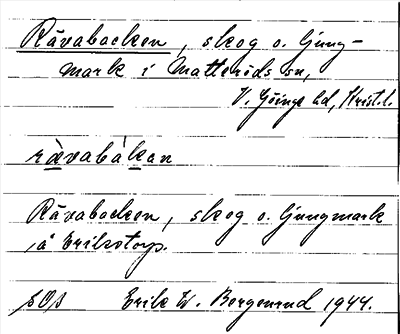 Rävabacken, skog o. ljung-
mark i Matteröds sn,
V. Göinge hd, Krist. l.
rävabákan
Rävabacken, skog o. ljungmark
å Erikstorp.
SOS Erik W. Bergenrud 1944.